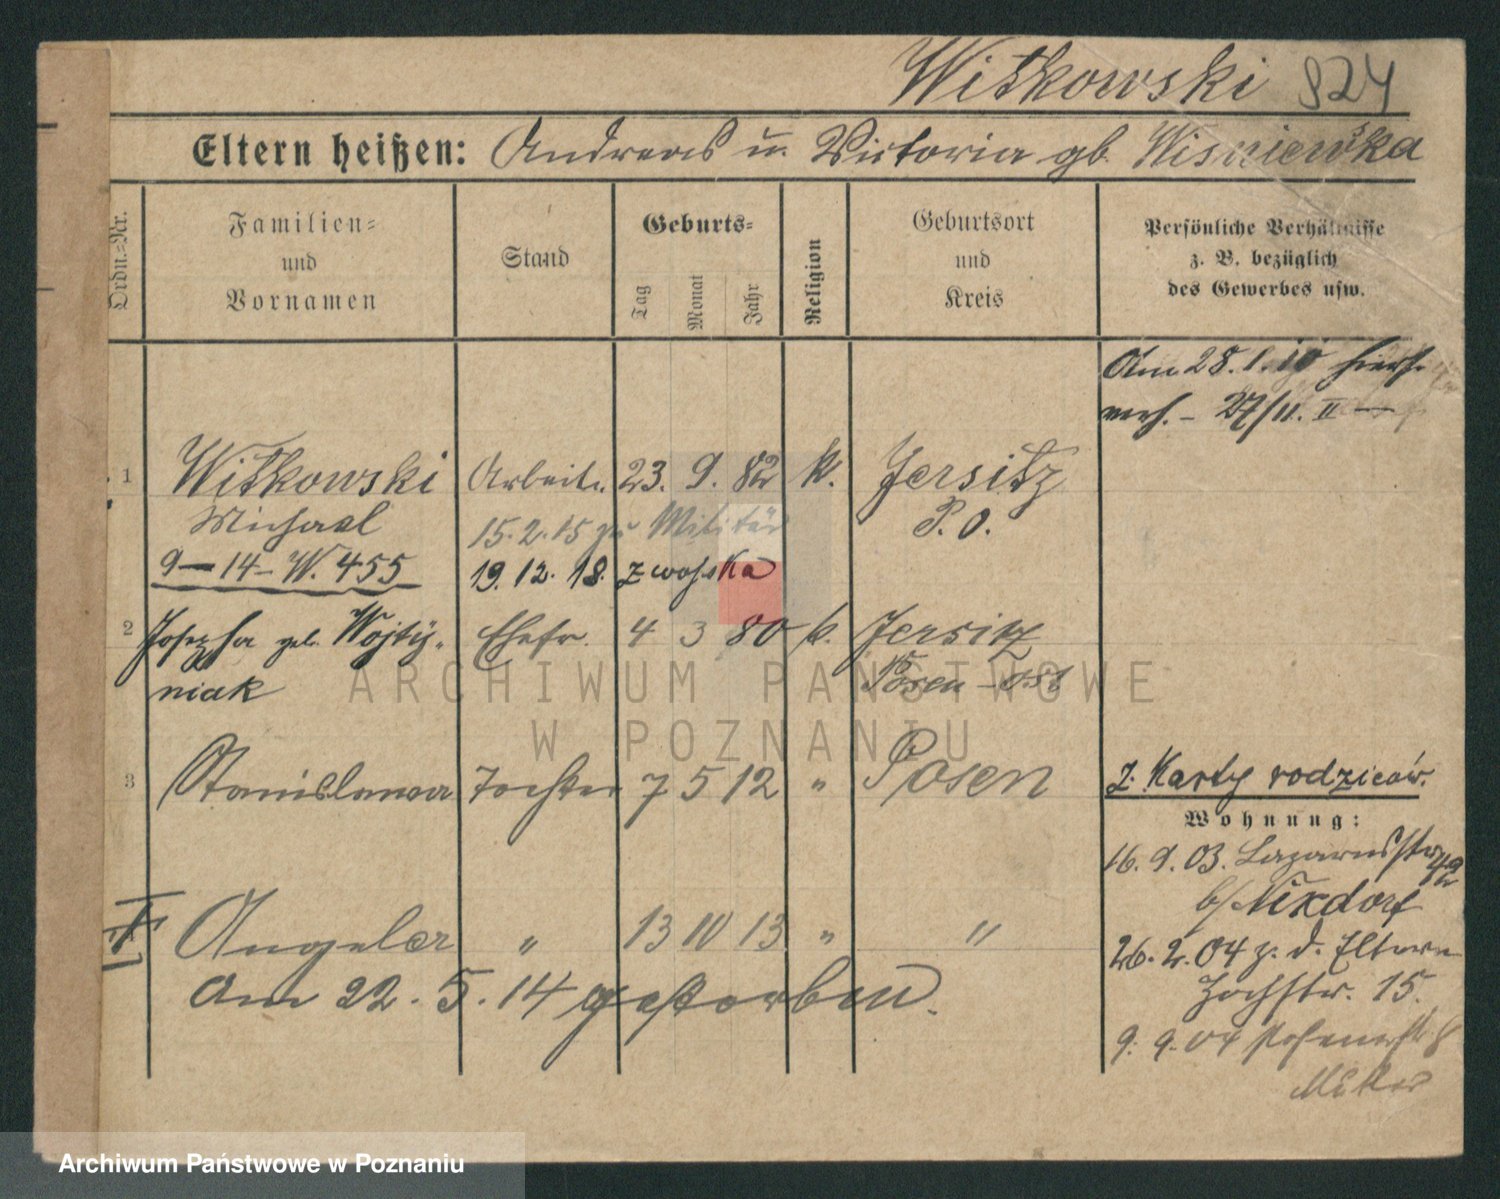 Witkowski 824
Eltern heißen: Andreas u. Victoria gb. Wisniewska
Ordn.-Nr.
Familien-
und
Vornamen
Stand
Geburts-
Tag
Monat
Jahr
Religion
Geburtsort
und
Kreis
Persönliche Verhältnisse
z. B. bezüglich
des Gewerbes usw.
Am 28. 1. 10 hiers.
verh. – 27/11. II –
1 Witkowski Arbeit. 23. 9. 82 k. Jersitz
Michael 15. 2. 15 zu Militär P. O.
9 – 14 – W. 455 19. 12. 18. z wojska
2 Josepha geb. Wojty- Ehefr. 4 3 80 k. Jersitz
niak Posen – Ost
3 Stanislawa Tochter 7 5 12 " Posen
Z. Karty rodziców.
Wohnung:
16. 9. 03. Lazarusstr. 42
b/ Nixdorf
Angela " 13 10 13 " "
26. 2. 04 z. d. Eltern
am 22. 5. 14 gestorben.
Hochstr. 15.
9. 9. 04 Posenerstr. 8
ARCHIWUM PAŃSTWOWE
W POZNANIU
Archiwum Państwowe w Poznaniu